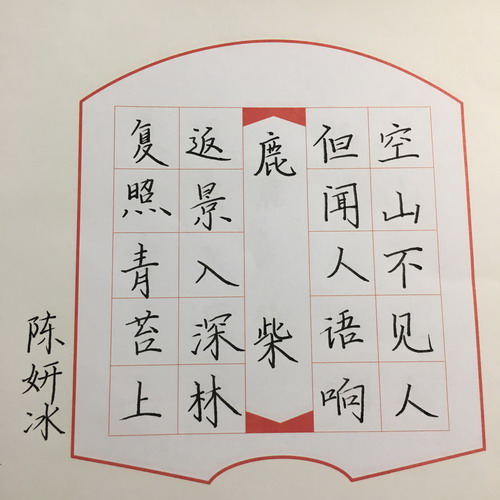 空山不见人
但闻人语响
鹿柴
返景入深林
复照青苔上
陈妍冰